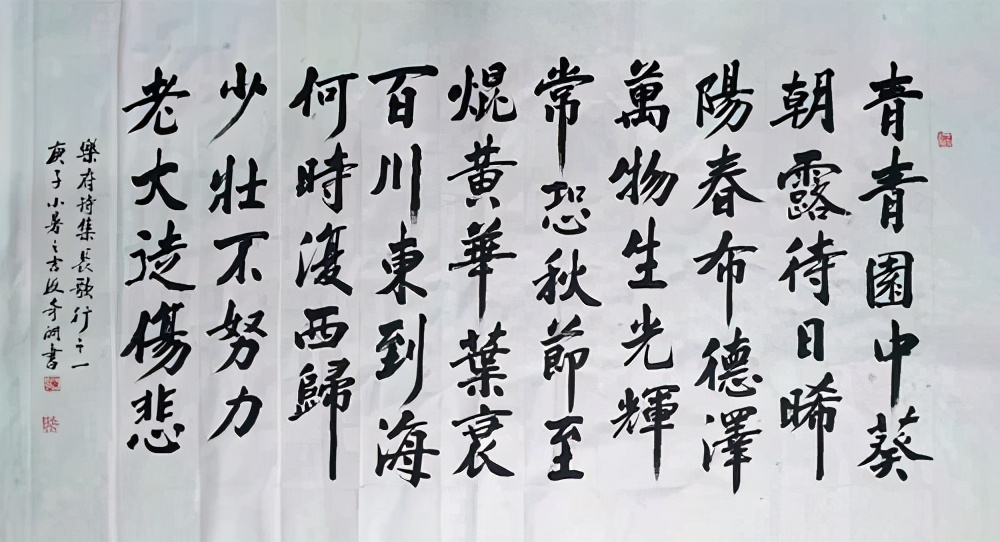 青青園中葵
朝露待日晞
陽春布德澤
萬物生光輝
常恐秋節至
焜黄華葉衰
百川東到海
何時復西歸
少壯不努力
老大徒傷悲
樂府詩集長歌行之一
庚子小暑之吉 書